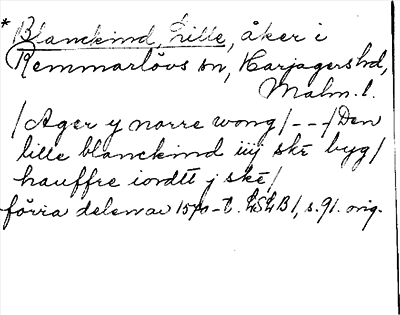 * Blanckind, Lille, åker i
Remmarlövs sn, Harjagers hd,
Malm. l.
/Ager y norre wong/ - - -/Den
lille blanckind iiij ske byg/
hauffre iordtt j ske/
förra delen av 1570-t. LSLB1, s. 91. orig.